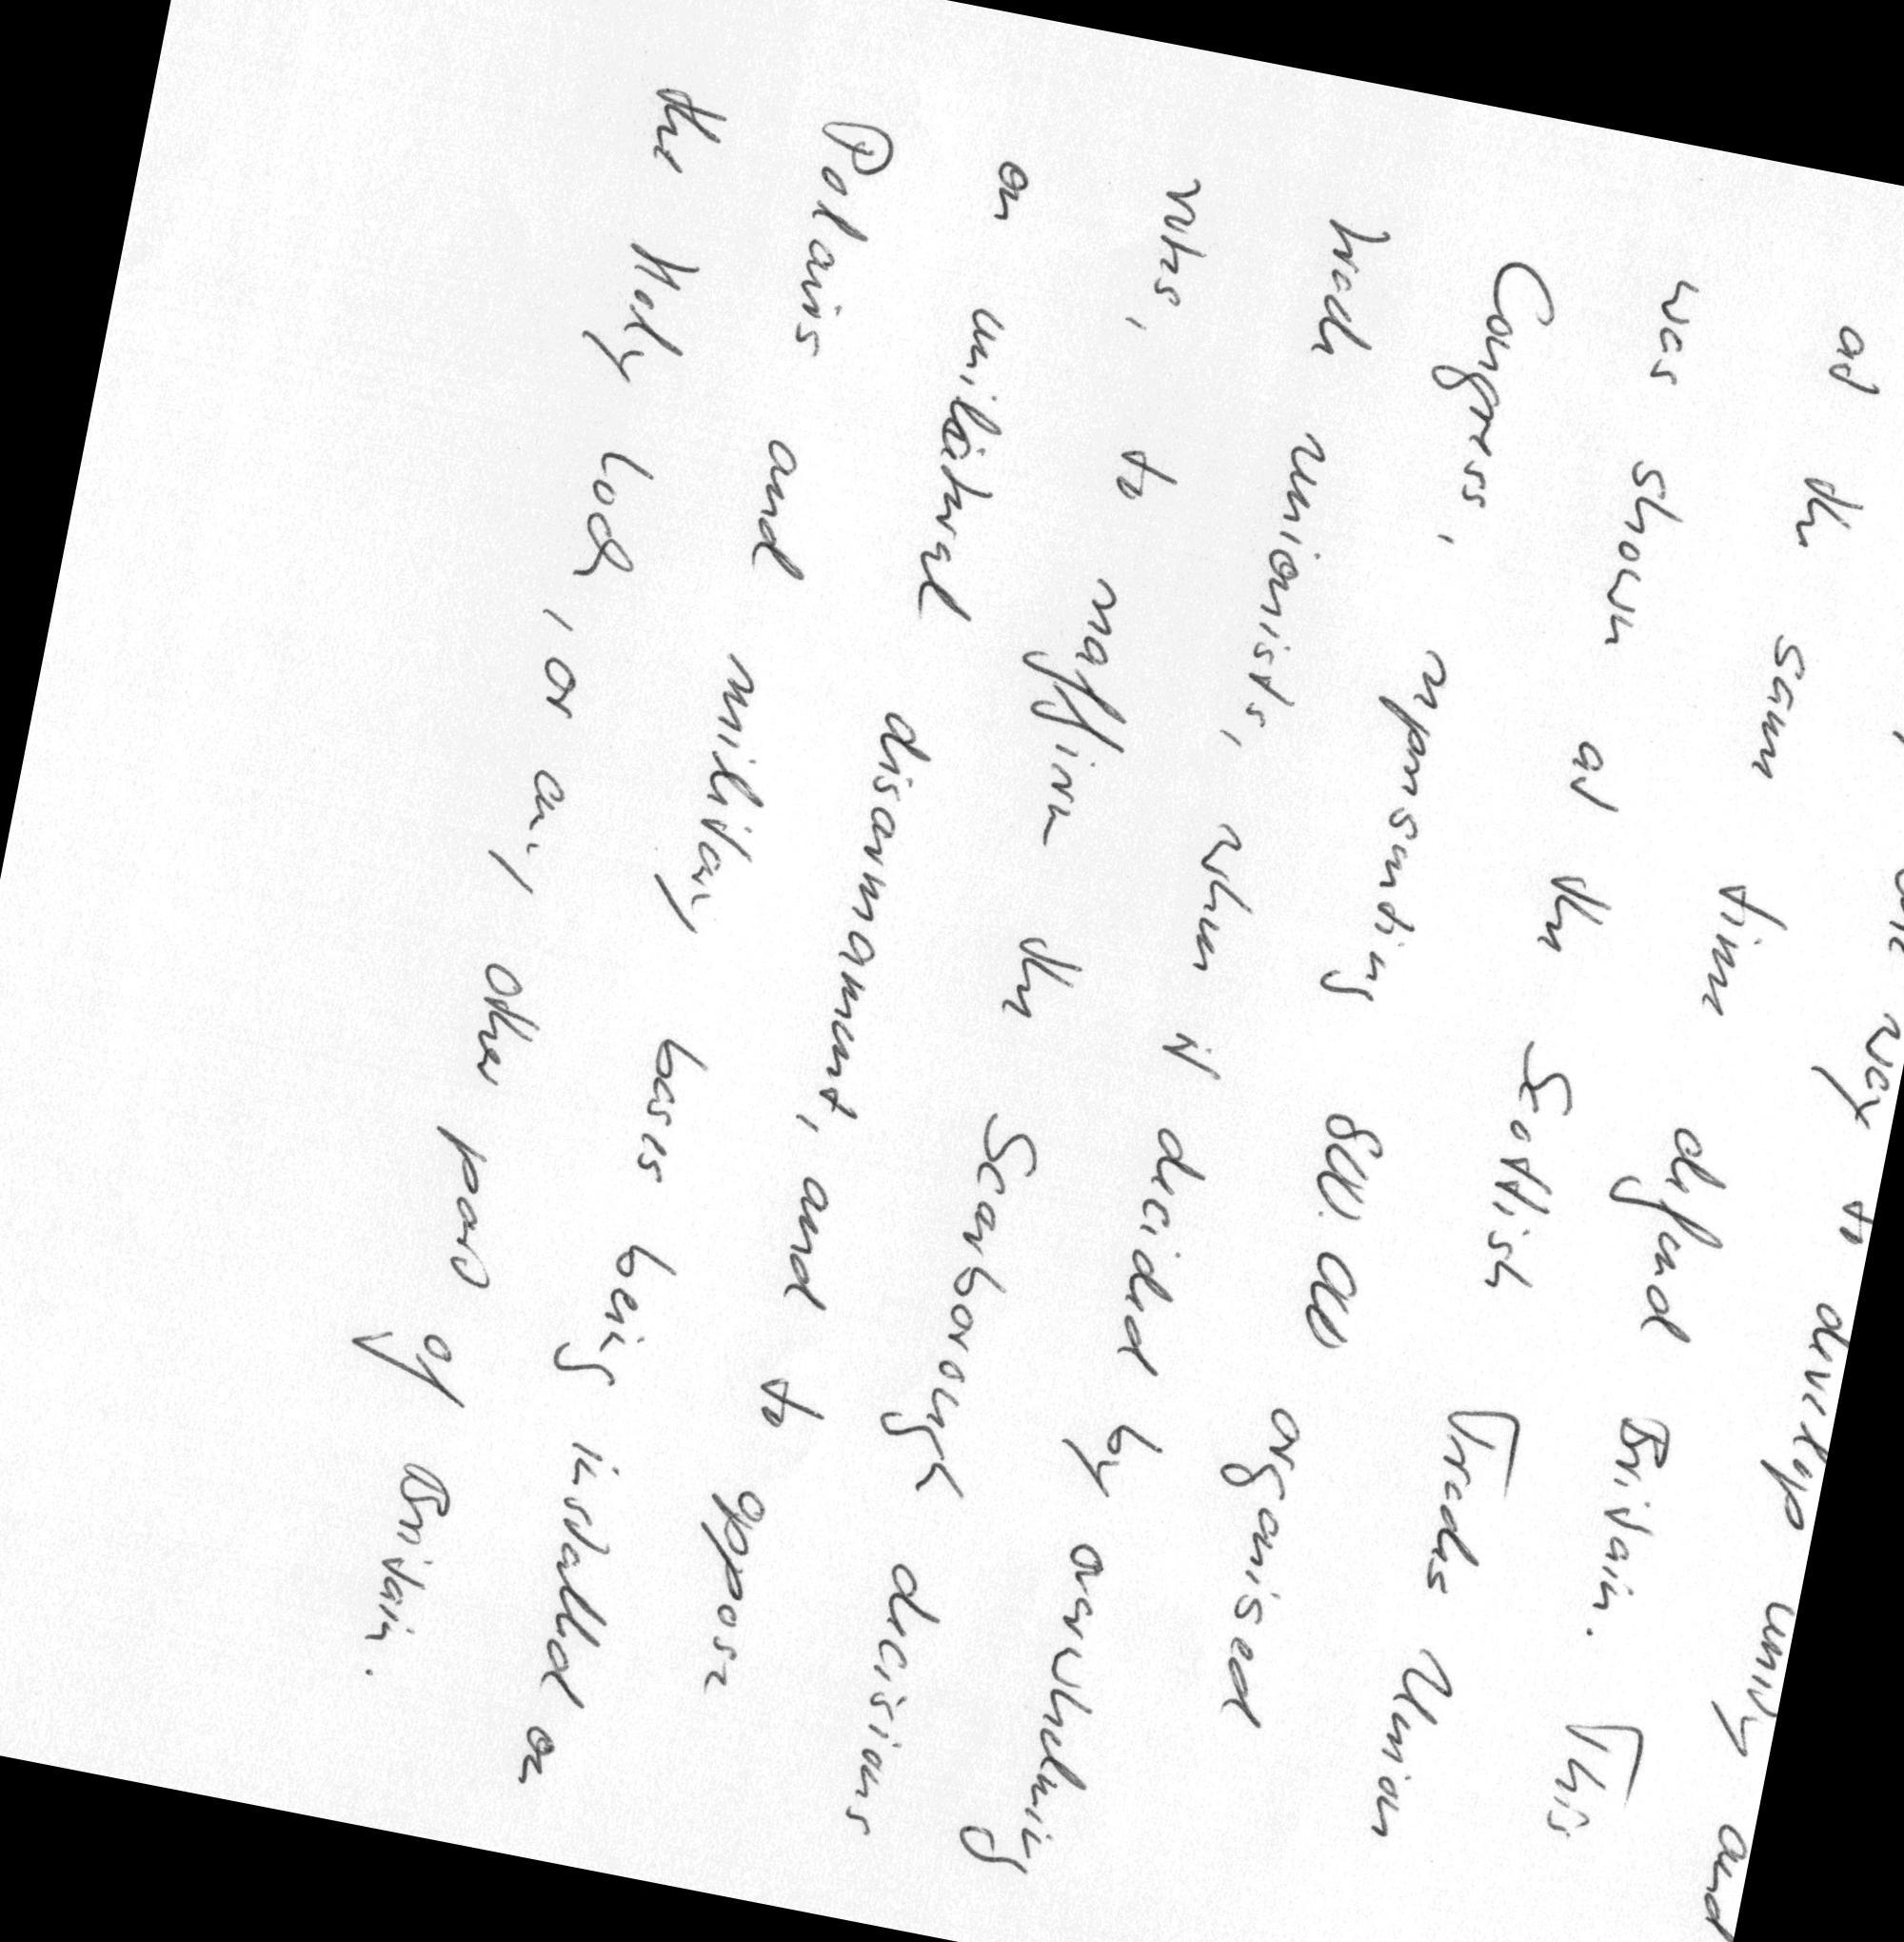 way to develop unity and
at the same time defend Britain. This
was shown at the Scottish Trades Union
Congress, representing 800,000 organised
trade unionists, when it decided by overwhelming
votes, to reaffirm the Scarborough decisions
on unilateral disarmament, and to oppose
Polaris and military bases being installed on
the Holy Loch, or any other part of Britain.